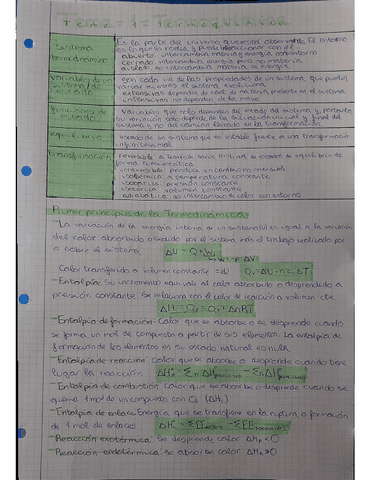 Tema - 1 = Termoquímica
Sistema termodinámico
Es la parte del universo que estoy observando. El entorno
es lo que lo rodea y puede interaccionar con él
abierto: intercambia materia y energía con entorno
cerrado: intercambia energía pero no materia
aislado: no intercambia materia ni energía
Variables de un sistema/de estado
son cada una de las propiedades de un sistema, que pueden
variar mientras el sistema evoluciona
extensivas: dependen de la cant. de materia presente en el sistema
intensivas: no dependen de la masa
Funciones de estado
Variables que solo dependen del estado del sistema y, por tanto
su variación solo depende de la situación inicial y final del
sistema, y no del camino llevado en la transformación
equilibrio
estado de un sistema que es estable frente a una transformación
infinitesimal
transformación
reversible: a través de serie continua de estados de equilibrio de
forma
irreversible: produce un cambio no
isotérmica: a temperatura constante
isobárica: presión constante
isocora: volumen constante
adiabática: no intercambio de calor con entorno
Primer principio de la Termodinámica
La variación de la energía interna de un sistema (U) es igual a la variación
del calor absorbido o cedido por el sistema más el trabajo realizado por
o sobre el sistema. ΔU = Q + W
W = -P·ΔV
Calor transferido a volumen constante = ΔU
- Entalpía: Su incremento equivale al calor absorbido o desprendido a
presión constante. Se relaciona con el calor de reacción a volumen cte
- Entalpía de formación: Calor que se absorbe o se desprende cuando
se forma un mol de compuesto a partir de sus elementos. La entalpía de
formación de los elementos en su estado natural es nula.
- Entalpía de reacción: Calor que se absorbe o desprende cuando tiene
lugar la reacción
- Entalpía de combustión: Calor que se absorbe o desprende cuando se
quema 1 mol de un compuesto con O₂
- Entalpía de enlace: Energía que se transfiere en la ruptura o formación
de 1 mol de enlaces
- Reacción exotérmica: Se desprende calor ΔHᵣ < 0
- Reacción endotérmica: se absorbe calor ΔHᵣ > 0